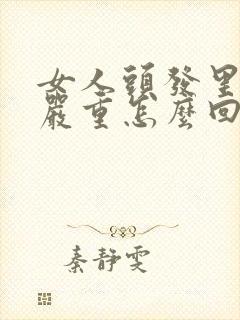 女人頭發里
嚴重怎麼回
秦靜雯